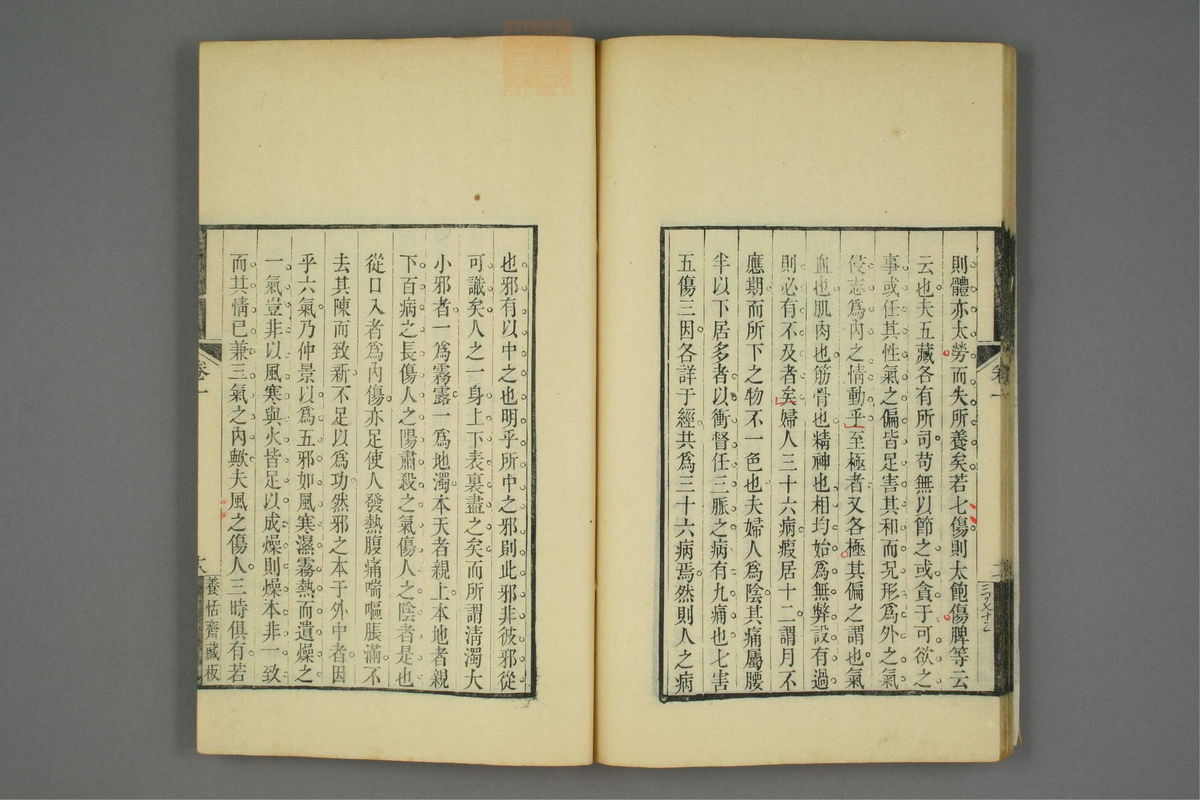 則體亦太勞而失所養矣若七傷則太飽傷脾等云
云也夫五藏各有所司苟無以節之或貪于可欲之
事或任其性氣之偏皆足害其和而況形爲外之氣
侵志爲內之情動乎至極者又各極其偏之謂也氣
血也肌肉也筋骨也精神也相均始爲無弊設有過
則必有不及者矣婦人三十六病瘕居十二謂月不
應期而所下之物不一色也夫婦人爲陰其痛屬腰
半以下居多者以衝督任三脈之病有九痛也七害
五傷三因各詳于經共爲三十六病焉然則人之病
卷一
也邪有以中之也明乎所中之邪則此邪非彼邪從
可識矣人之一身上下表裏盡之矣而所謂清濁大
小邪者一爲霧露一爲地濁本天者親上本地者親
下百病之長傷人之陽肅殺之氣傷人之陰者是也
從口入者爲內傷亦足使人發熱腹痛喘嘔脹滿不
去其陳而致新不足以爲功然邪之本于外中者因
乎六氣乃仲景以爲五邪如風寒濕霧熱而遺燥之
一氣豈非以風寒與火皆足以成燥則燥本非一致
而其情已兼三氣之內歟夫風之傷人三時俱有若
卷一
養恬齋藏板